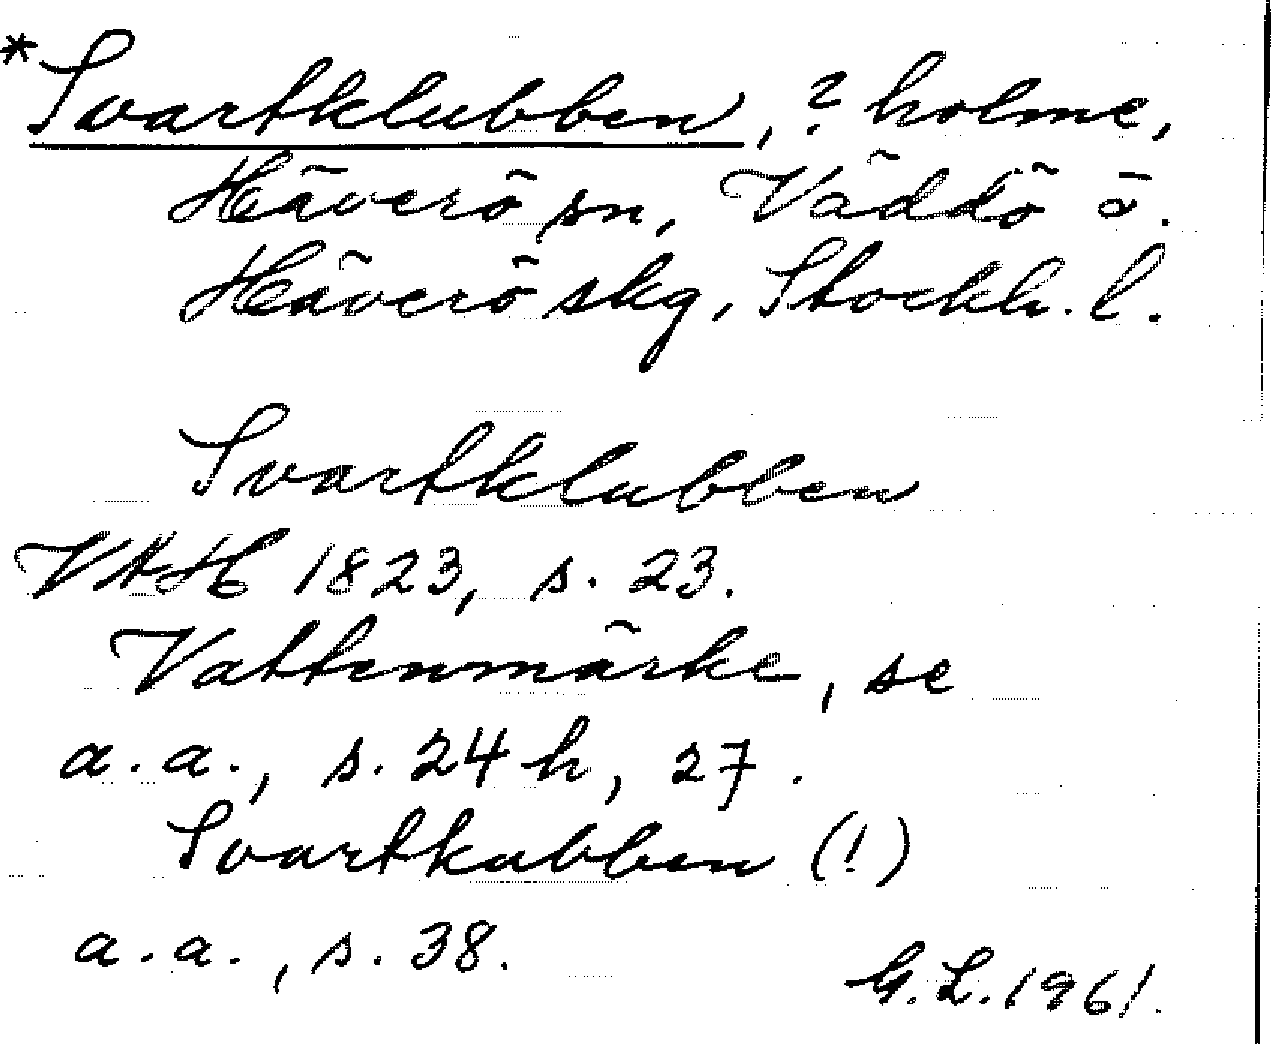 *Svartklubben, ? holme,
Häverö sn, Väddö o.
Häverö skg, Stockh. l.
Svartklubben
VAH 1823, s. 23.
Vattenmärke, se
a.a., s. 24 h, 27.
Svartkubben (!)
a.a., s. 38.
G.L. 1961.